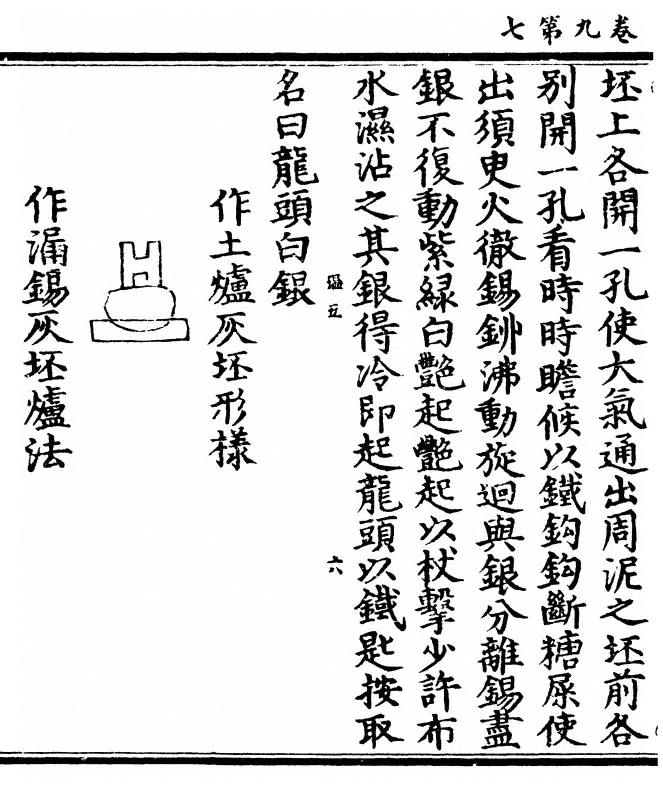 卷九第七
坯上各開一孔使大氣通出周泥之坯前各
別開一孔看時時瞻候以鐵鈎鈎斷糖屎使
出須臾火徹錫鉚沸動旋迴與銀分離錫盡
銀不復動紫綠白艷起艷起以杖擊少許布
水濕沾之其銀得冷即起龍頭以鐵匙按取
名曰龍頭白銀
五
六
作土爐灰坯形樣
作漏錫灰坯爐法